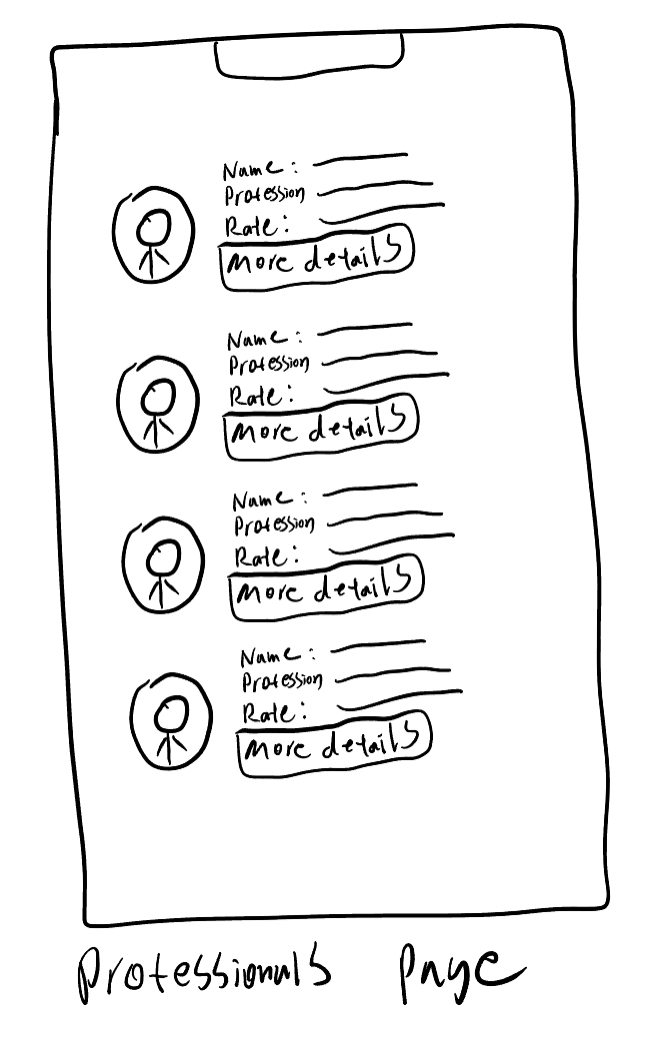 Name:
Profession
Rate:
More details
Name:
Profession
Rate:
More details
Name:
Profession
Rate:
More details
Name:
Profession
Rate:
More details
Professionals Page